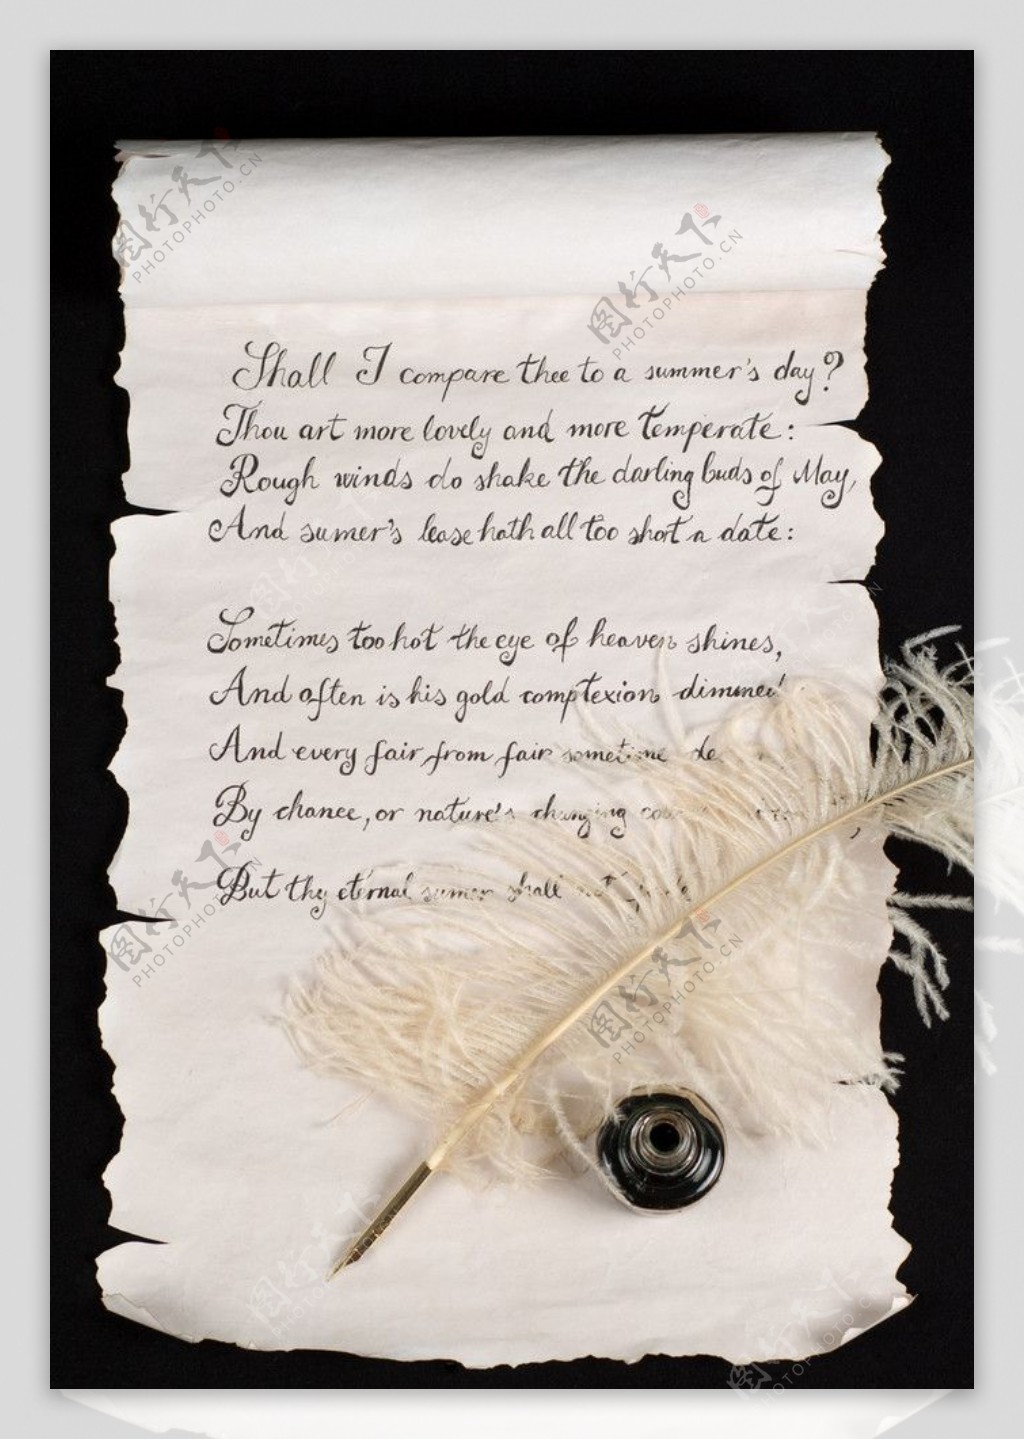 Shall I compare thee to a summer's day?
Thou art more lovely and more temperate:
Rough winds do shake the darling buds of May,
And sumer's lease hath all too short a date:
Sometimes too hot the eye of heaven shines,
And often is his gold comptexion dimmed
And every fair from fair sometime
By chance, or nature's changing
But thy eternal sumer shall not
图行天下
PHOTOPHOTO.CN
图行天下
PHOTOPHOTO.CN
图行天下
PHOTOPHOTO.CN
图行天下
PHOTOPHOTO.CN